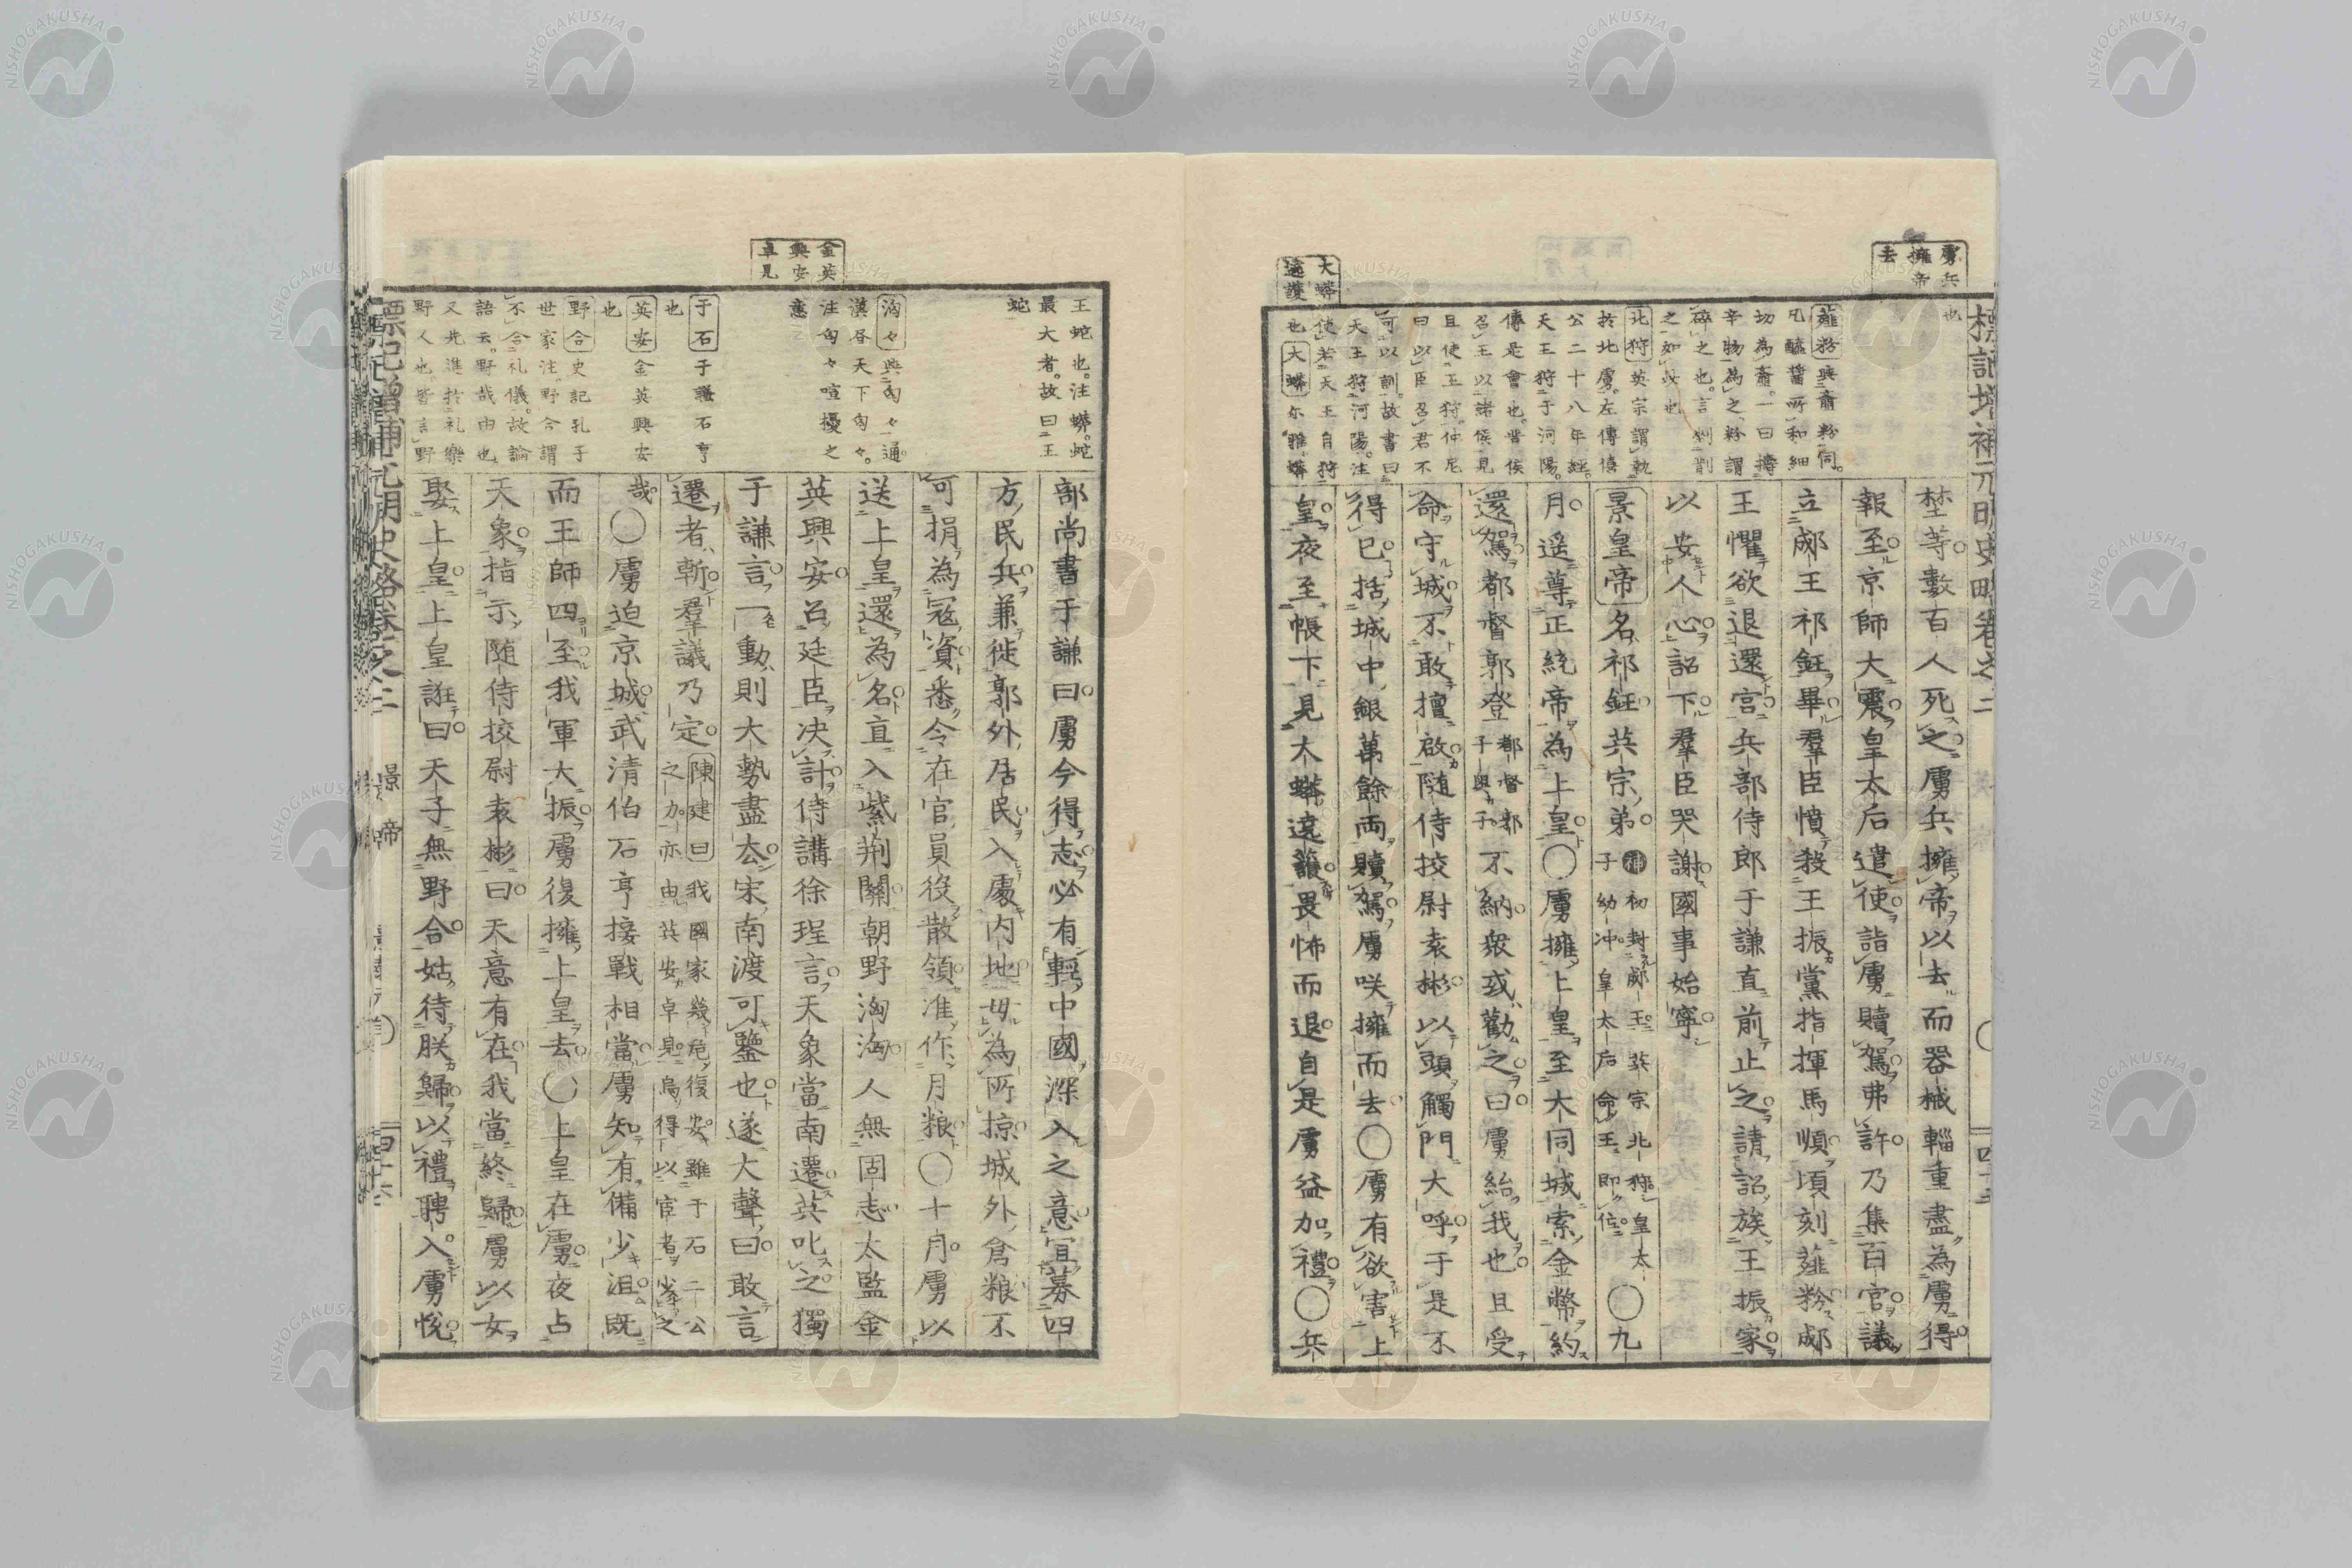 標記増補元明史略卷之二
虜兵
擁帝
去
也
薤粉與齏粉同。
凡醯醤所和細
切為齏。一曰擣
辛物為之、粉謂
碎之也。言
之如此也
北狩英宗謂執
於北虜。左傳僖
公二十八年經。
天王狩于河陽。
傳是會也。晋侯
召王以諸侯見
且使王狩。仲尼
曰以臣召君不
可以訓。故書曰
天王狩河陽。注
使若天王自狩
也大蟒尓雅、蟒
大蟒
遶護
埜等數百人死之虜兵擁帝以去而器械輜重盡為虜得
報至京師大震皇太后遣使詣虜贖駕弗許乃集百官議
立郕王祁鈺畢羣臣憤殺王振黨指揮馬順頃刻薤粉郕
王懼欲退還宮兵部侍郎于謙直前止之請詔族王振家
以安人心詔下羣臣哭謝國事始寧
景皇帝名祁鈺英宗弟補初封郕王英宗北狩皇太子幼冲皇太后命王即位〇九
月遥尊正統帝為上皇〇虜擁上皇至大同城索金幣約
還駕都督郭登都督郭子興子不納衆或勸之曰虜紿我也且受
命守城不敢擅啟隨侍挍尉袁彬以頭觸門大呼于是不
得已括城中銀萬餘兩贖駕虜咲擁而去〇虜有欲害上
皇夜至帳下見大蟒遶護畏怖而退自是虜益加禮〇兵
王蛇也。注蟒。蛇
最大者。故曰王
蛇
洶々與匈々通。
漢㕦天下匈々。
注匈々喧擾之
意
金英
興安
卓見
于石于謙石亨
也
英安金英興安
也
野合史記孔子
世家注。野合謂
不合礼儀。故論
語云。野哉由也
又先進於礼樂
野人也。皆言野
部尚書于謙曰虜今得志必有輕中國深入之意宜募四
方民兵兼徙郭外居民入處内地毋為所掠城外倉粮不
可捐為寇資悉令在官員役散領准作月粮〇十月虜以
送上皇還為名直入紫荆關朝野洶洶人無固志太監金
英興安召廷臣决計侍講徐珵言天象當南遷英叱之獨
于謙言一動則大勢盡去宋南渡可鑒也遂大聲曰敢言
遷者斬羣議乃定陳建曰我國家幾危復安雖于石二公之力亦由英安卓見烏得以宦者少之
哉〇虜迫京城武清伯石亨接戰相當虜知有備少沮既
而王師四至我軍大振虜復擁上皇去〇上皇在虜夜占
天象指示隨侍挍尉袁彬曰天意有在我當終歸虜以女
娶上皇上皇誑曰天子無野合姑待朕歸以禮聘入虜悦
標記増補元明史略卷之二
景帝